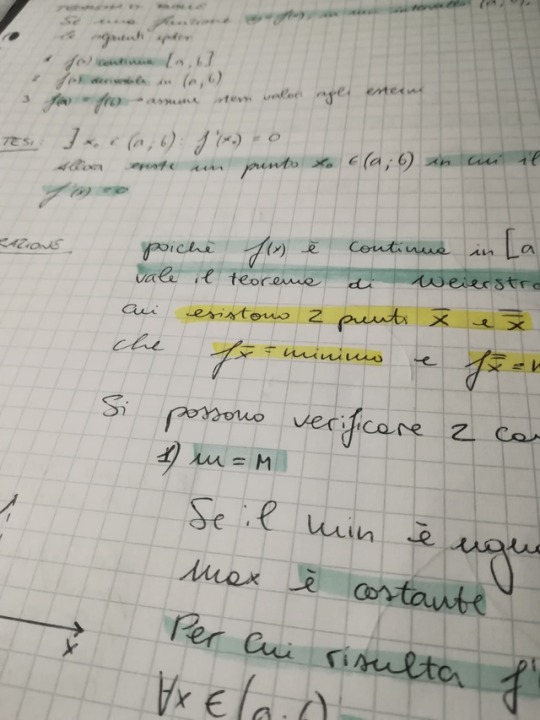 Se una funzione y=f(x), in un intervallo (a, b),
le seguenti
1 f(x) continua [a, b]
2 f(x) derivabile in (a, b)
3 f(a) = f(b) → assume stessi valori agli estremi
TESI: ∃ x₀ ∈ (a, b): f'(x₀) = 0
Allora esiste un punto x₀ ∈ (a; b) in cui il
f'(x) = 0
RAZIONE poiché f(x) è continua in [a
vale il teorema di Weierstra
cui esistono 2 punti x̅ e x̿
che f x̅ = minimo e f x̿ =
Si possono verificare 2 ca
1) m = M
Se il min è ugua
max è costante
x
Per cui risulta f'
∀x ∈ (a,